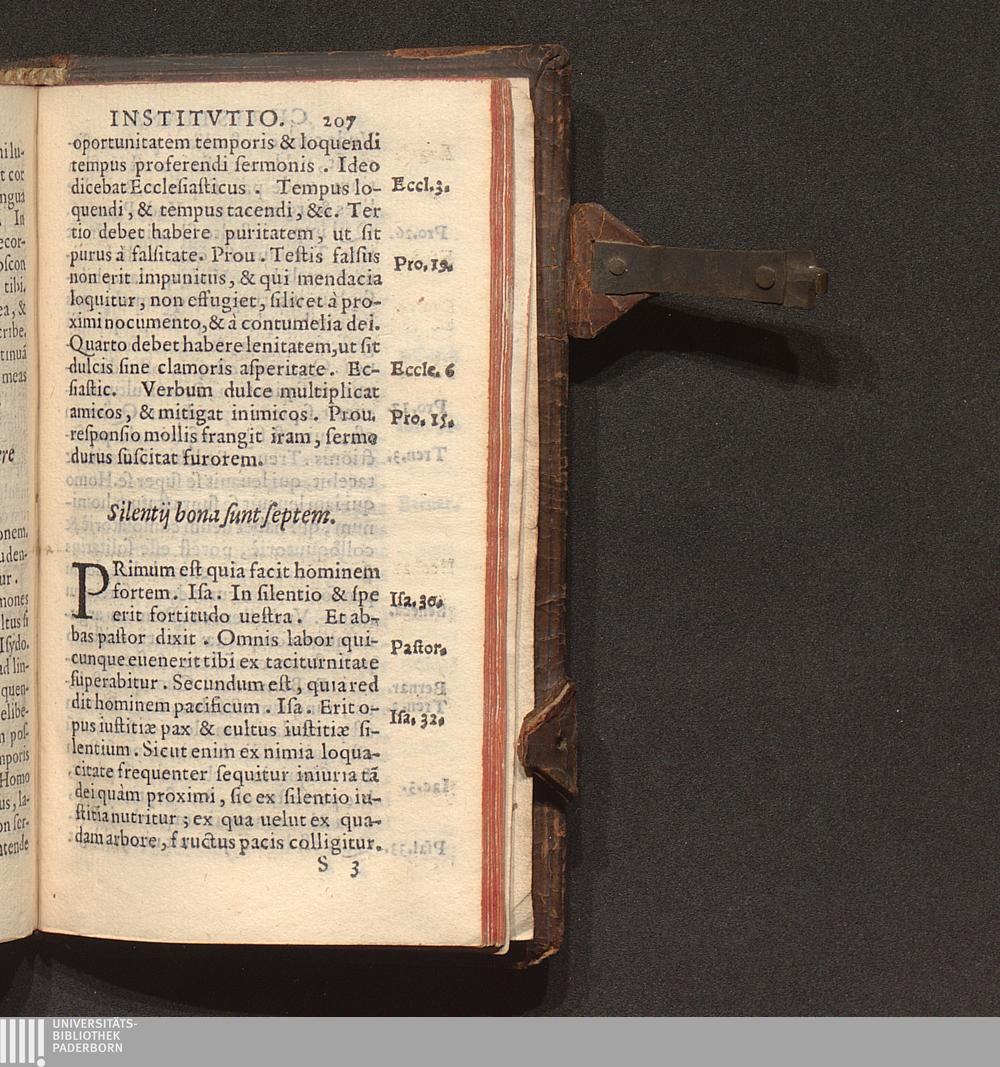 INSTITVTIO. 207
oportunitatem temporis & loquendi
tempus proferendi sermonis. Ideo
dicebat Ecclesiasticus. Tempus lo-
Eccl.3.
quendi, & tempus tacendi, &c. Ter
tio debet habere puritatem, ut sit
purus à falsitate. Prou. Testis falsus
Pro.19.
non erit impunitus, & qui mendacia
loquitur, non effugiet, silicet à pro-
ximi nocumento, & à contumelia dei.
Quarto debet habere lenitatem, ut sit
dulcis sine clamoris asperitate. Ec-
Eccle.6
siastic. Verbum dulce multiplicat
amicos, & mitigat inimicos. Prou.
Pro.15.
responsio mollis frangit iram, sermo
durus suscitat furorem.
Silentij bona sunt septem.
PRimum est quia facit hominem
fortem. Isa. In silentio & spe
Isa.30.
erit fortitudo uestra. Et ab-
bas pastor dixit. Omnis labor qui-
Pastor.
cunque euenerit tibi ex taciturnitate
superabitur. Secundum est, quia red
dit hominem pacificum. Isa. Erit o-
Isa.32.
pus iustitiæ pax & cultus iustitiæ si-
lentium. Sicut enim ex nimia loqua-
citate frequenter sequitur iniuria tã
dei quàm proximi, sic ex silentio iu-
stitia nutritur; ex qua uelut ex qua-
dam arbore, fructus pacis colligitur.
S 3
UNIVERSITÄTS-
BIBLIOTHEK
PADERBORN